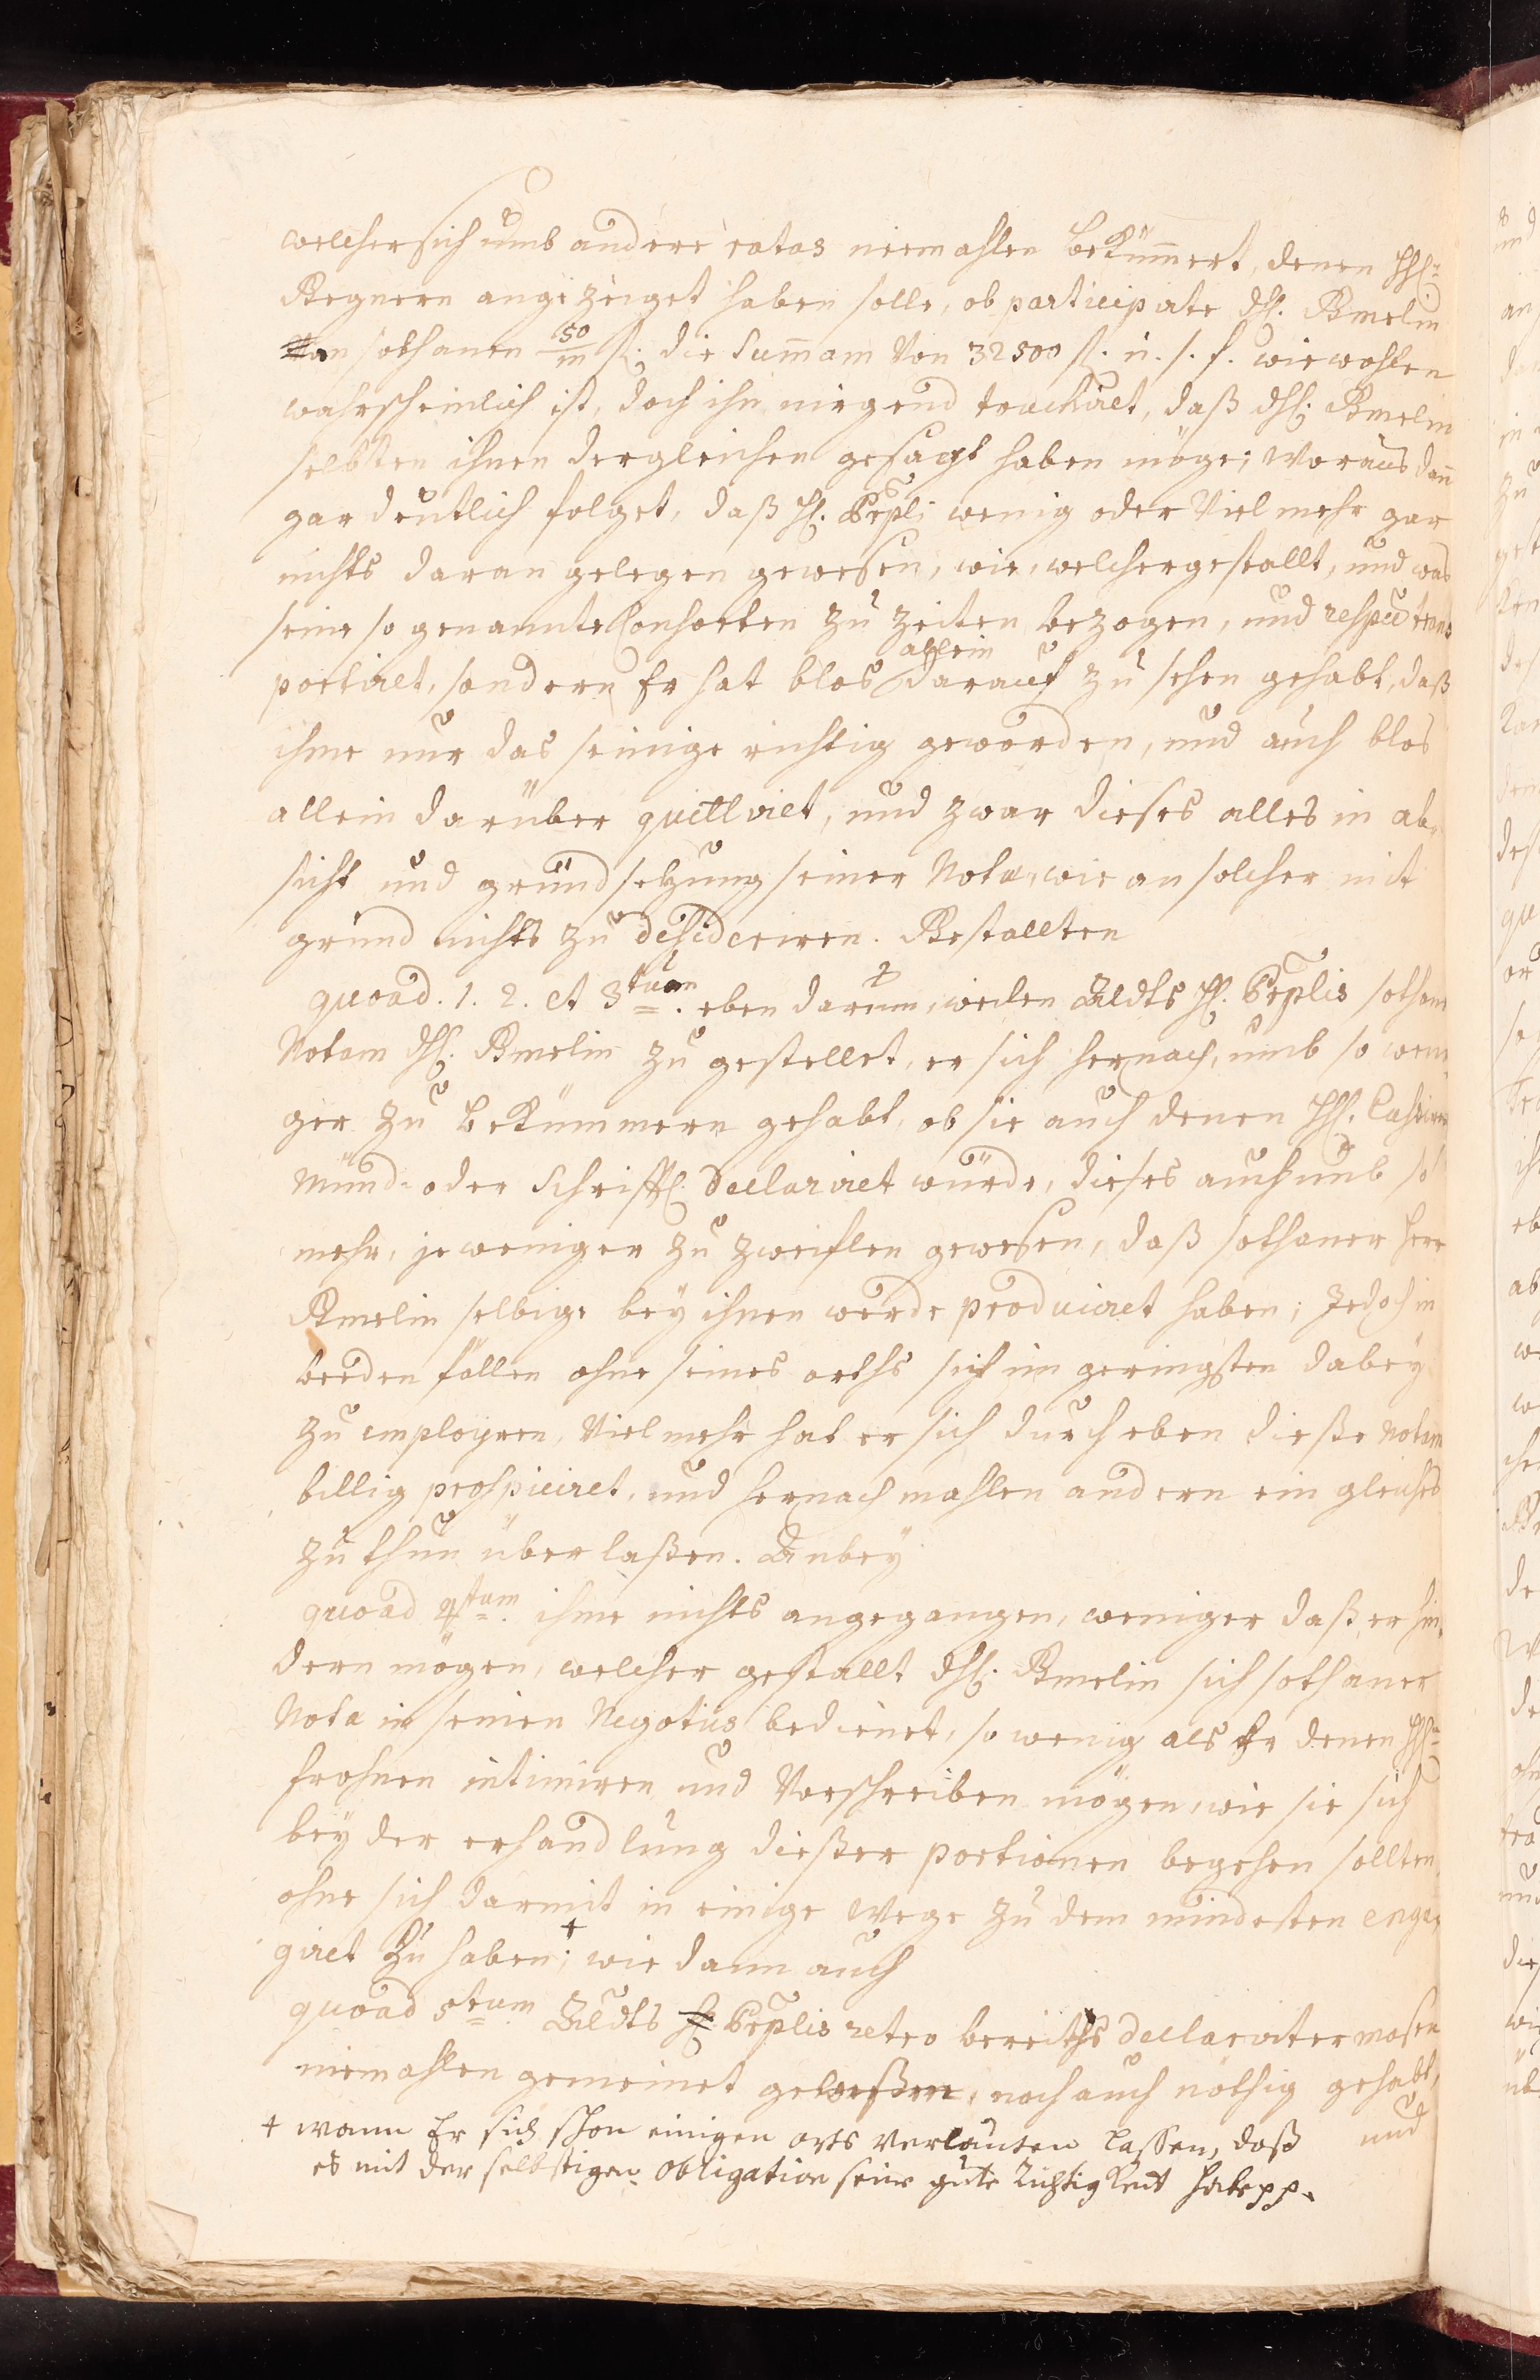 welcher sich umb andere ratas niemahlen bekümmert, denen HH.
Gegnern angezeiget haben solle, ob participirte Hl. Gmelin
an sothanen 50/m fl. die Summam von 32500 fl. u. s. f. wie wohlen
wahrscheinlich ist, doch ihn nirgend touchiret, daß Hl. Gmelin
selbsten ihnen dergleichen gesagt haben möge; woraus dann
gar deutlich folget, daß H. Peplis wenig oder viel mehr gar
nichts daran gelegen gewesen, wie, welchergestallt, und was
seine so genannte Consorten zu zeiten bezogen, und respective
allein
portiret, sondern Er hat blos darauf zu sehen gehabt, daß
ihme nur das seinige richtig geworden, und auch blos
allein darüber quittiret, und zwar dieses alles in ab-
sicht und grundsetzung seiner Nota, wie an solcher mit
grund nichts zu desideriren. Gestallten
quoad. 1. 2. et 3tium. eben darum, weilen H. Peplis sothane
Notam Hl. Gmelin zu gestellet, er sich hernach, umb so weni-
ger zu bekümmern gehabt, ob sie auch denen HH.
Mund- oder Schrifftl. declariret würde, dieses auch umb so
mehr, je weniger zu zweiflen gewesen, daß sothaner Herr
Gmelin selbige bey ihnen werde produciret haben; Jedoch in
beeden fällen ohne seines orths sich im geringsten dabey
zu employren, Viel mehr hat er sich durch eben dieße Notam
billig prospiciret, und hernach mahlen andern ein gleiches
zu thun überlaßen. Anbey
quoad 4tum. ihme nichts angegangen, weniger daß er hin-
dern mögen, welcher gestallt Hl. Gmelin sich sothaner
Nota in seinen Negotiis bedienet, so wenig als Er denen HH.
Frohnen intimiren und Vorschreiben mögen, wie sie sich
bey der erhandlung dießer portionen begehen sollten,
ohne sich darmit in einige Wege zu dem mindesten enga-
giret zu haben; + wie dann auch
quoad 5tum Peplis retro bereiths declarirter maßen
niemahlen gemeinet geweßen, noch auch nöthig gehabt,
und
+ wann Er sich schon einigen orts verlauten lassen, daß
es mit der selbstigen obligation seine gute Richtigkeit habe pp.